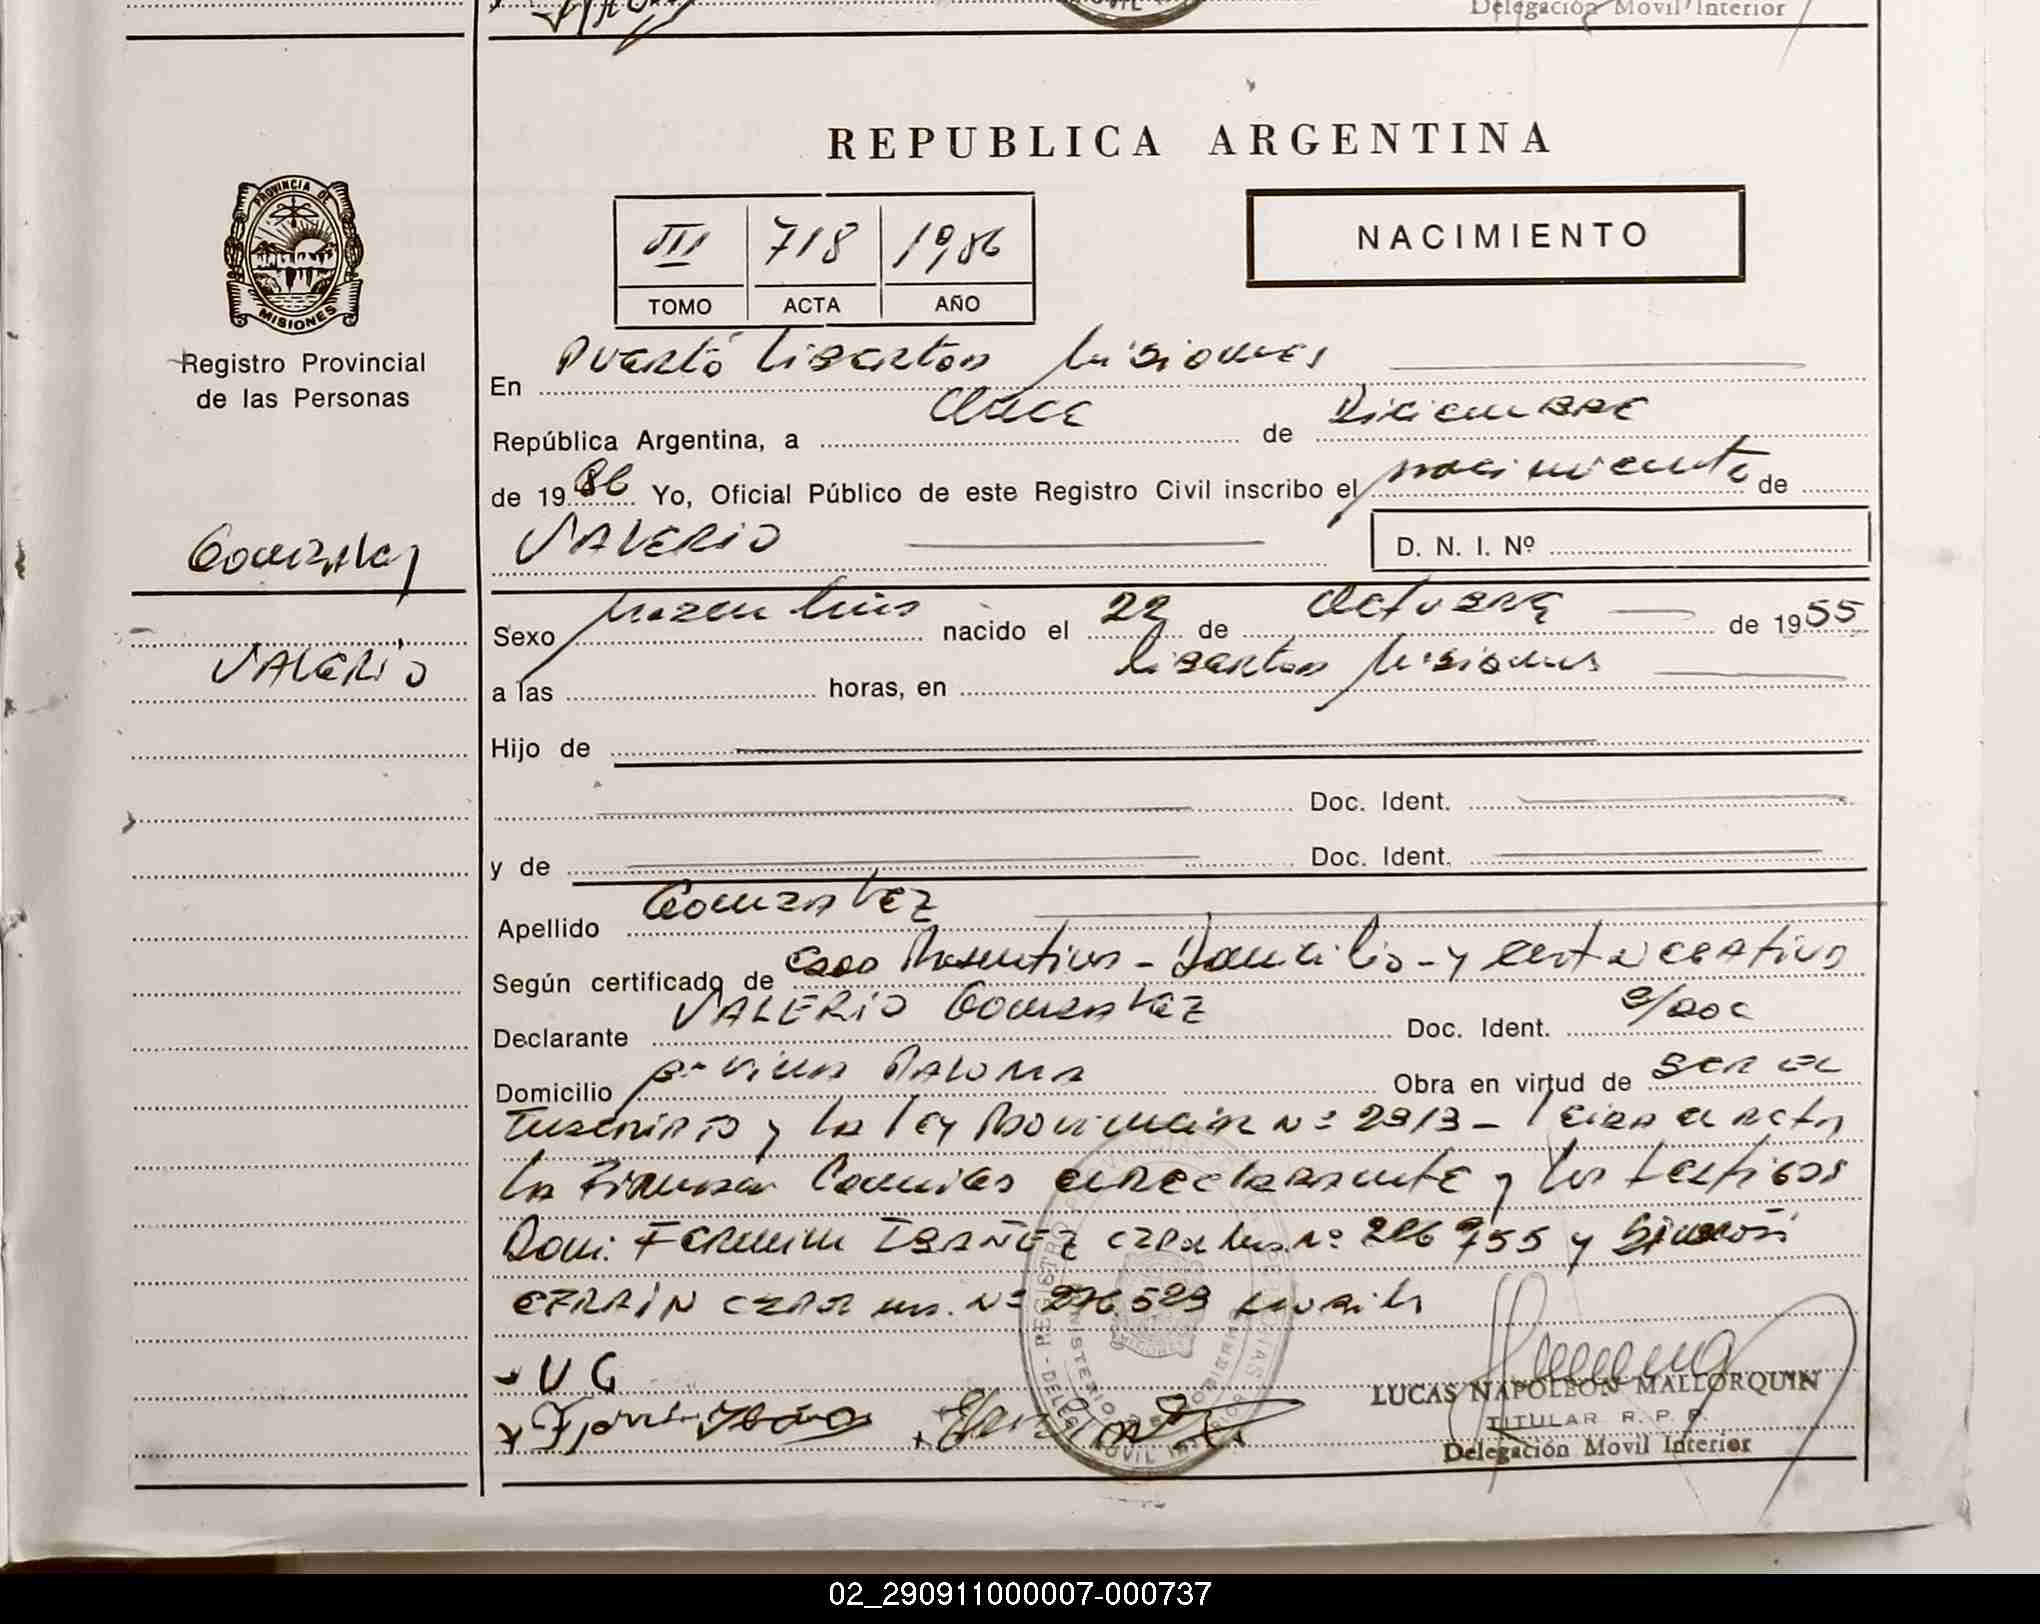 Delegación Movil Interior
REPUBLICA ARGENTINA
PROVINCIA DE
MISIONES
Registro Provincial
de las Personas
III 718 1986
TOMO ACTA AÑO
NACIMIENTO
En Puerto Libertad Misiones
República Argentina, a Once de Diciembre
de 1986 Yo, Oficial Público de este Registro Civil inscribo el nacimiento de
Gonzalez
VALERIO D. N. I. Nº
Sexo Masculino nacido el 22 de Octubre de 1955
Valerio
a las horas, en Libertad Misiones
Hijo de
Doc. Ident.
y de Doc. Ident.
Apellido Gonzalez
Según certificado de Domicilio - y
Declarante VALERIO Gonzalez Doc. Ident. s/doc
Domicilio Villa Paloma Obra en virtud de ser el
Inscripto y la Ley Provincial Nº 2313 - Leida el acta
la Firman Conmigo el Declarante y los testigos
Don: Fermin IBAÑEZ Nº y
Nº
V G
LUCAS NAPOLEON MALLORQUIN
TITULAR R. P. P.
Delegación Movil Interior
02_290911000007-000737